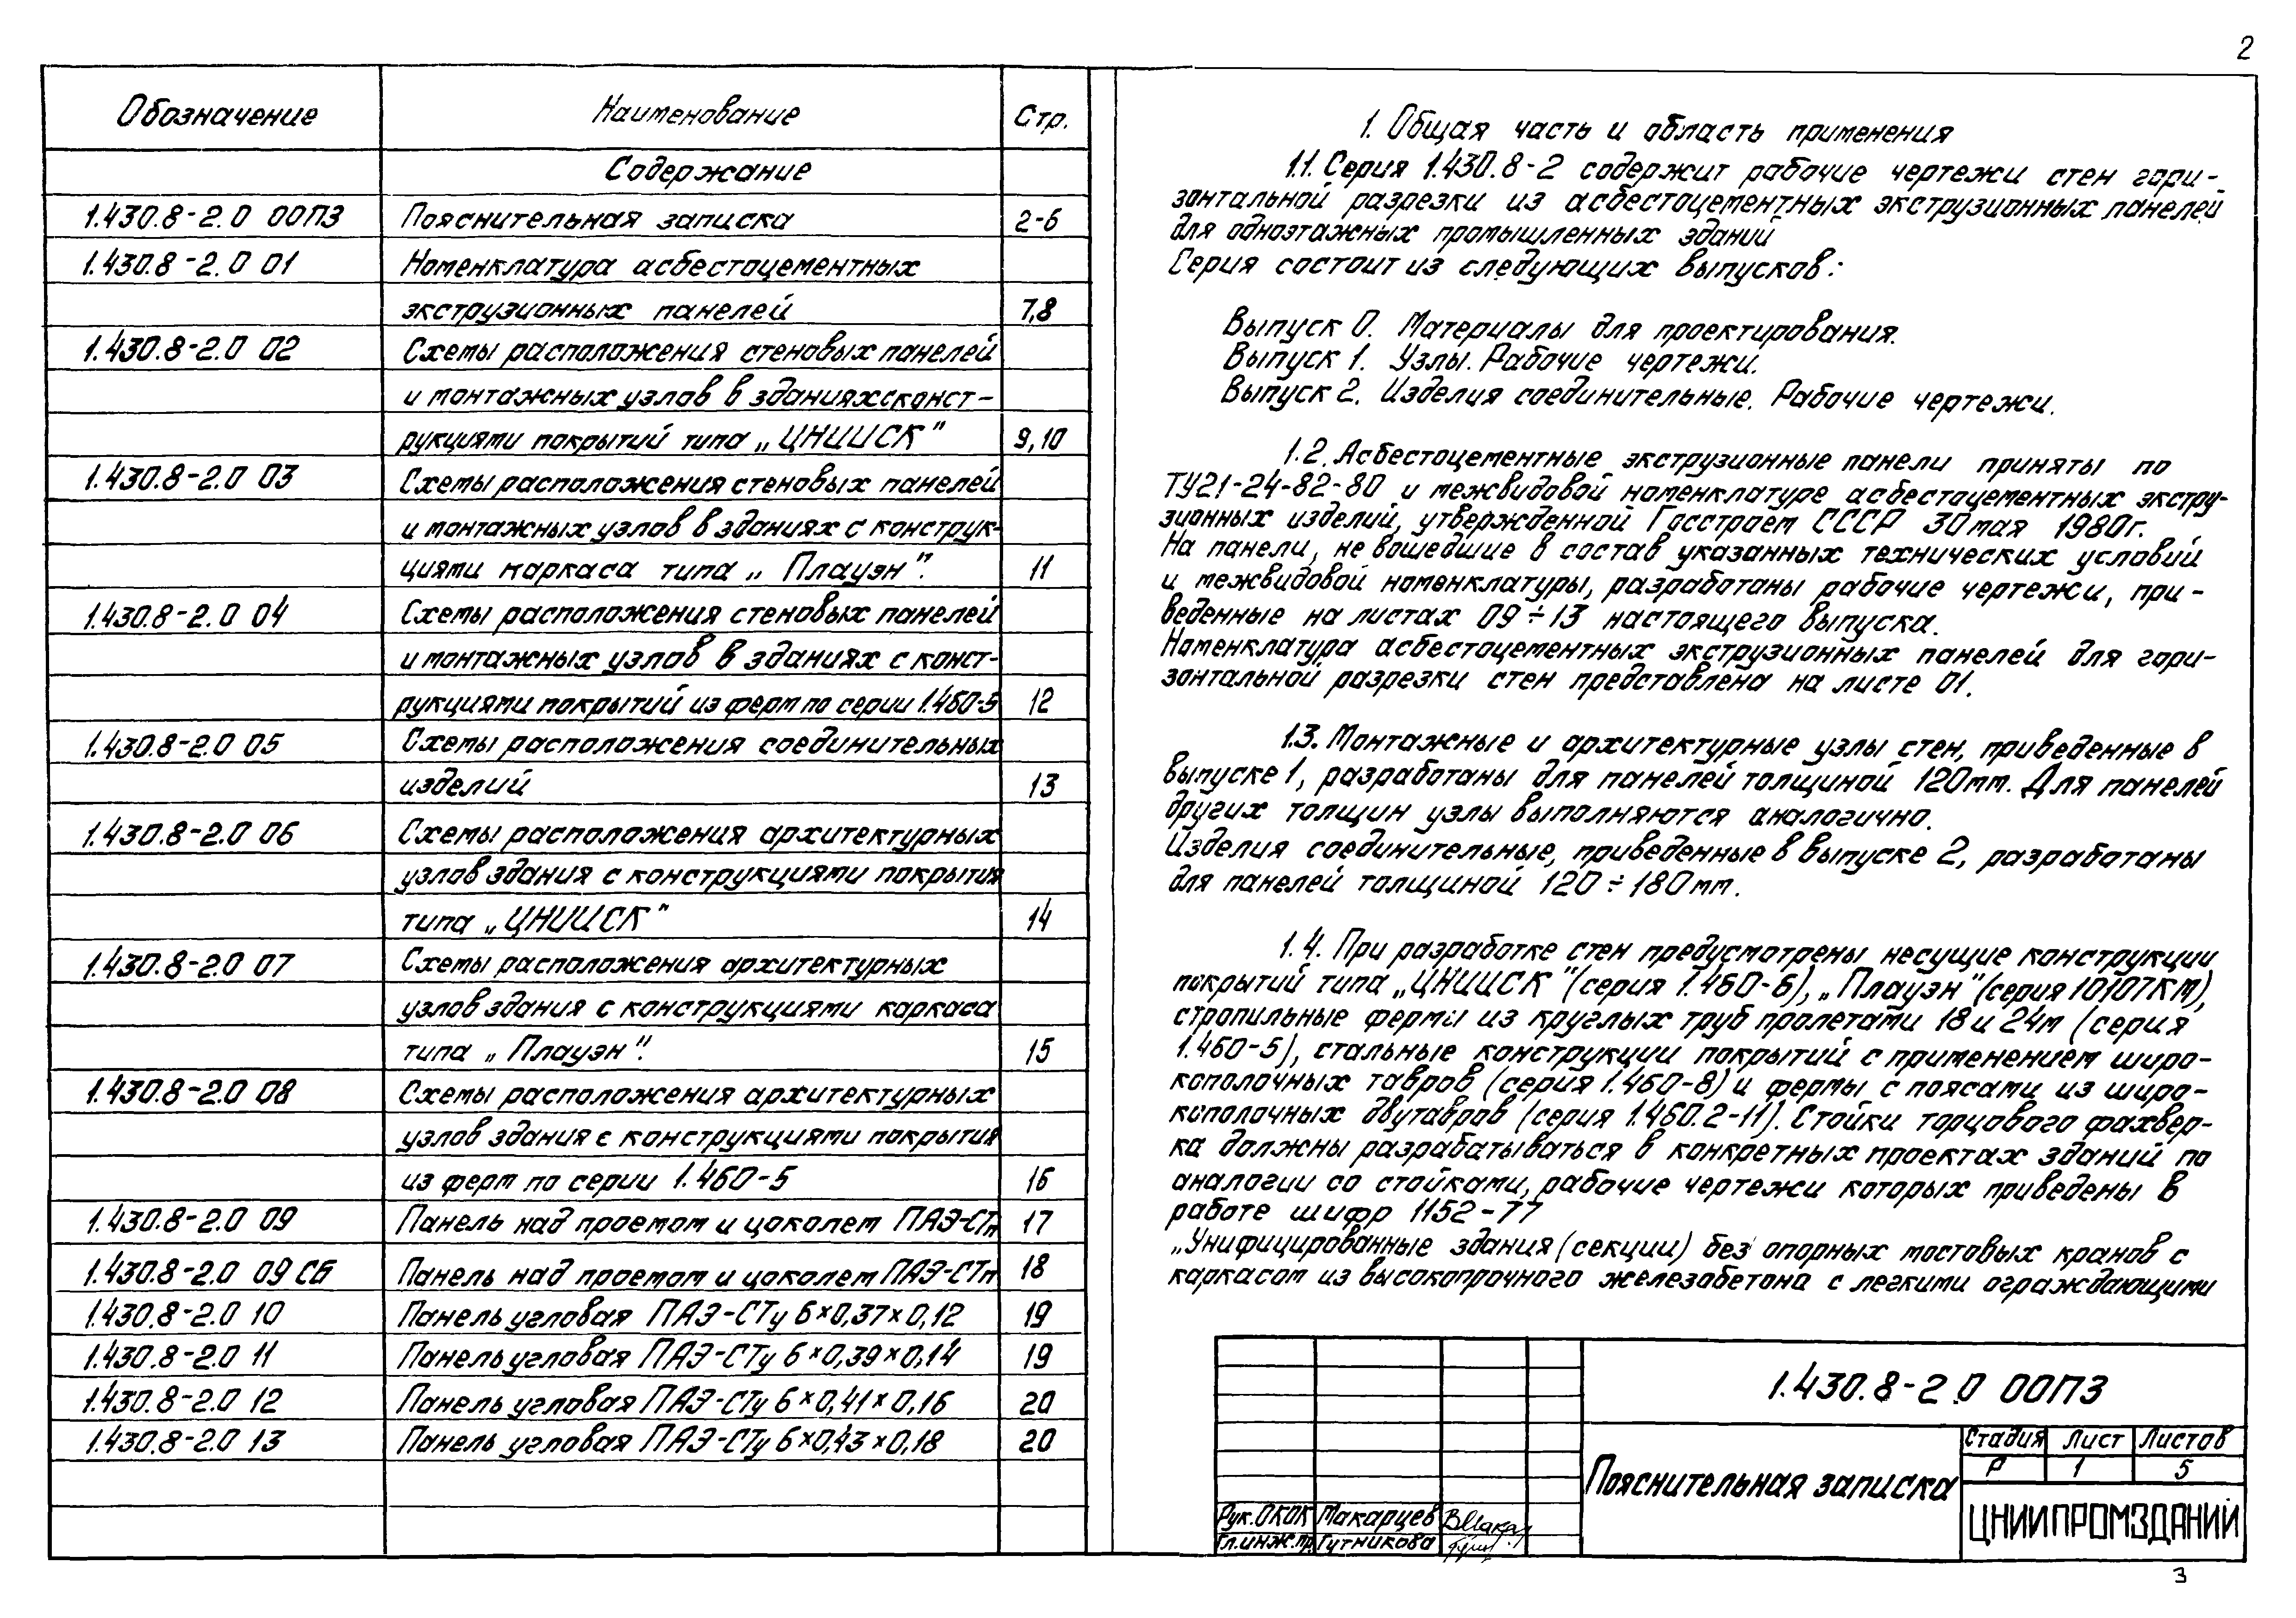 2
Обозначение Наименование Стр.
Содержание
1.430.8-2.0 00ПЗ Пояснительная записка 2-6
1.430.8-2.0 01 Номенклатура асбестоцементных
экструзионных панелей 7,8
1.430.8-2.0 02 Схемы расположения стеновых панелей
и монтажных узлов в зданияхсконст-
рукциями покрытий типа „ЦНИИСК" 9,10
1.430.8-2.0 03 Схемы расположения стеновых панелей
и монтажных узлов в зданиях с конструк-
циями каркаса типа „Плауэн". 11
1.430.8-2.0 04 Схемы расположения стеновых панелей
и монтажных узлов в зданиях с конст-
рукциями покрытий из ферм по серии 1.460-5 12
1.430.8-2.0 05 Схемы расположения соединительных
изделий 13
1.430.8-2.0 06 Схемы расположения архитектурных
узлов здания с конструкциями покрытия
типа „ЦНИИСК" 14
1.430.8-2.0 07 Схемы расположения архитектурных
узлов здания с конструкциями каркаса
типа „Плауэн". 15
1.430.8-2.0 08 Схемы расположения архитектурных
узлов здания с конструкциями покрытия
из ферм по серии 1.460-5 16
1.430.8-2.0 09 Панель над проемом и цоколем ПАЭ-СТп 17
1.430.8-2.0 09 СБ Панель над проемом и цоколем ПАЭ-СТп 18
1.430.8-2.0 10 Панель угловая ПАЭ-СТу 6×0,37×0,12 19
1.430.8-2.0 11 Панель угловая ПАЭ-СТу 6×0,39×0,14 19
1.430.8-2.0 12 Панель угловая ПАЭ-СТу 6×0,41×0,16 20
1.430.8-2.0 13 Панель угловая ПАЭ-СТу 6×0,43×0,18 20
1. Общая часть и область применения
1.1. Серия 1.430.8-2 содержит рабочие чертежи стен гори-
зонтальной разрезки из асбестоцементных экструзионных панелей
для одноэтажных промышленных зданий
Серия состоит из следующих выпусков:
Выпуск 0. Материалы для проектирования.
Выпуск 1. Узлы. Рабочие чертежи.
Выпуск 2. Изделия соединительные. Рабочие чертежи.
1.2. Асбестоцементные экструзионные панели приняты по
ТУ21-24-82-80 и межвидовой номенклатуре асбестоцементных экстру-
зионных изделий, утвержденной Госстроем СССР 30 мая 1980г.
На панели, не вошедшие в состав указанных технических условий
и межвидовой номенклатуры, разработаны рабочие чертежи, при-
веденные на листах 09÷13 настоящего выпуска.
Номенклатура асбестоцементных экструзионных панелей для гори-
зонтальной разрезки стен представлена на листе 01.
1.3. Монтажные и архитектурные узлы стен, приведенные в
выпуске 1, разработаны для панелей толщиной 120мм. Для панелей
других толщин узлы выполняются аналогично.
Изделия соединительные, приведенные в выпуске 2, разработаны
для панелей толщиной 120÷180мм.
1.4. При разработке стен предусмотрены несущие конструкции
покрытий типа „ЦНИИСК"(серия 1.460-6), „Плауэн"(серия 10107КМ),
стропильные фермы из круглых труб пролетами 18 и 24м (серия
1.460-5), стальные конструкции покрытий с применением широ-
кополочных тавров (серия 1.460-8) и фермы с поясами из широ-
кополочных двутавров (серия 1.460.2-11). Стойки торцового фахвер-
ка должны разрабатываться в конкретных проектах зданий по
аналогии со стойками, рабочие чертежи которых приведены в
работе шифр 1152-77
„Унифицированные здания (секции) без опорных мостовых кранов с
каркасом из высокопрочного железобетона с легкими ограждающими
1.430.8-2.0 00ПЗ
Пояснительная записка
Стадия Лист Листов
Р 1 5
ЦНИИПРОМЗДАНИЙ
Рук. ОКОК Макарцев
Гл.инж.пр. Гутникова
3